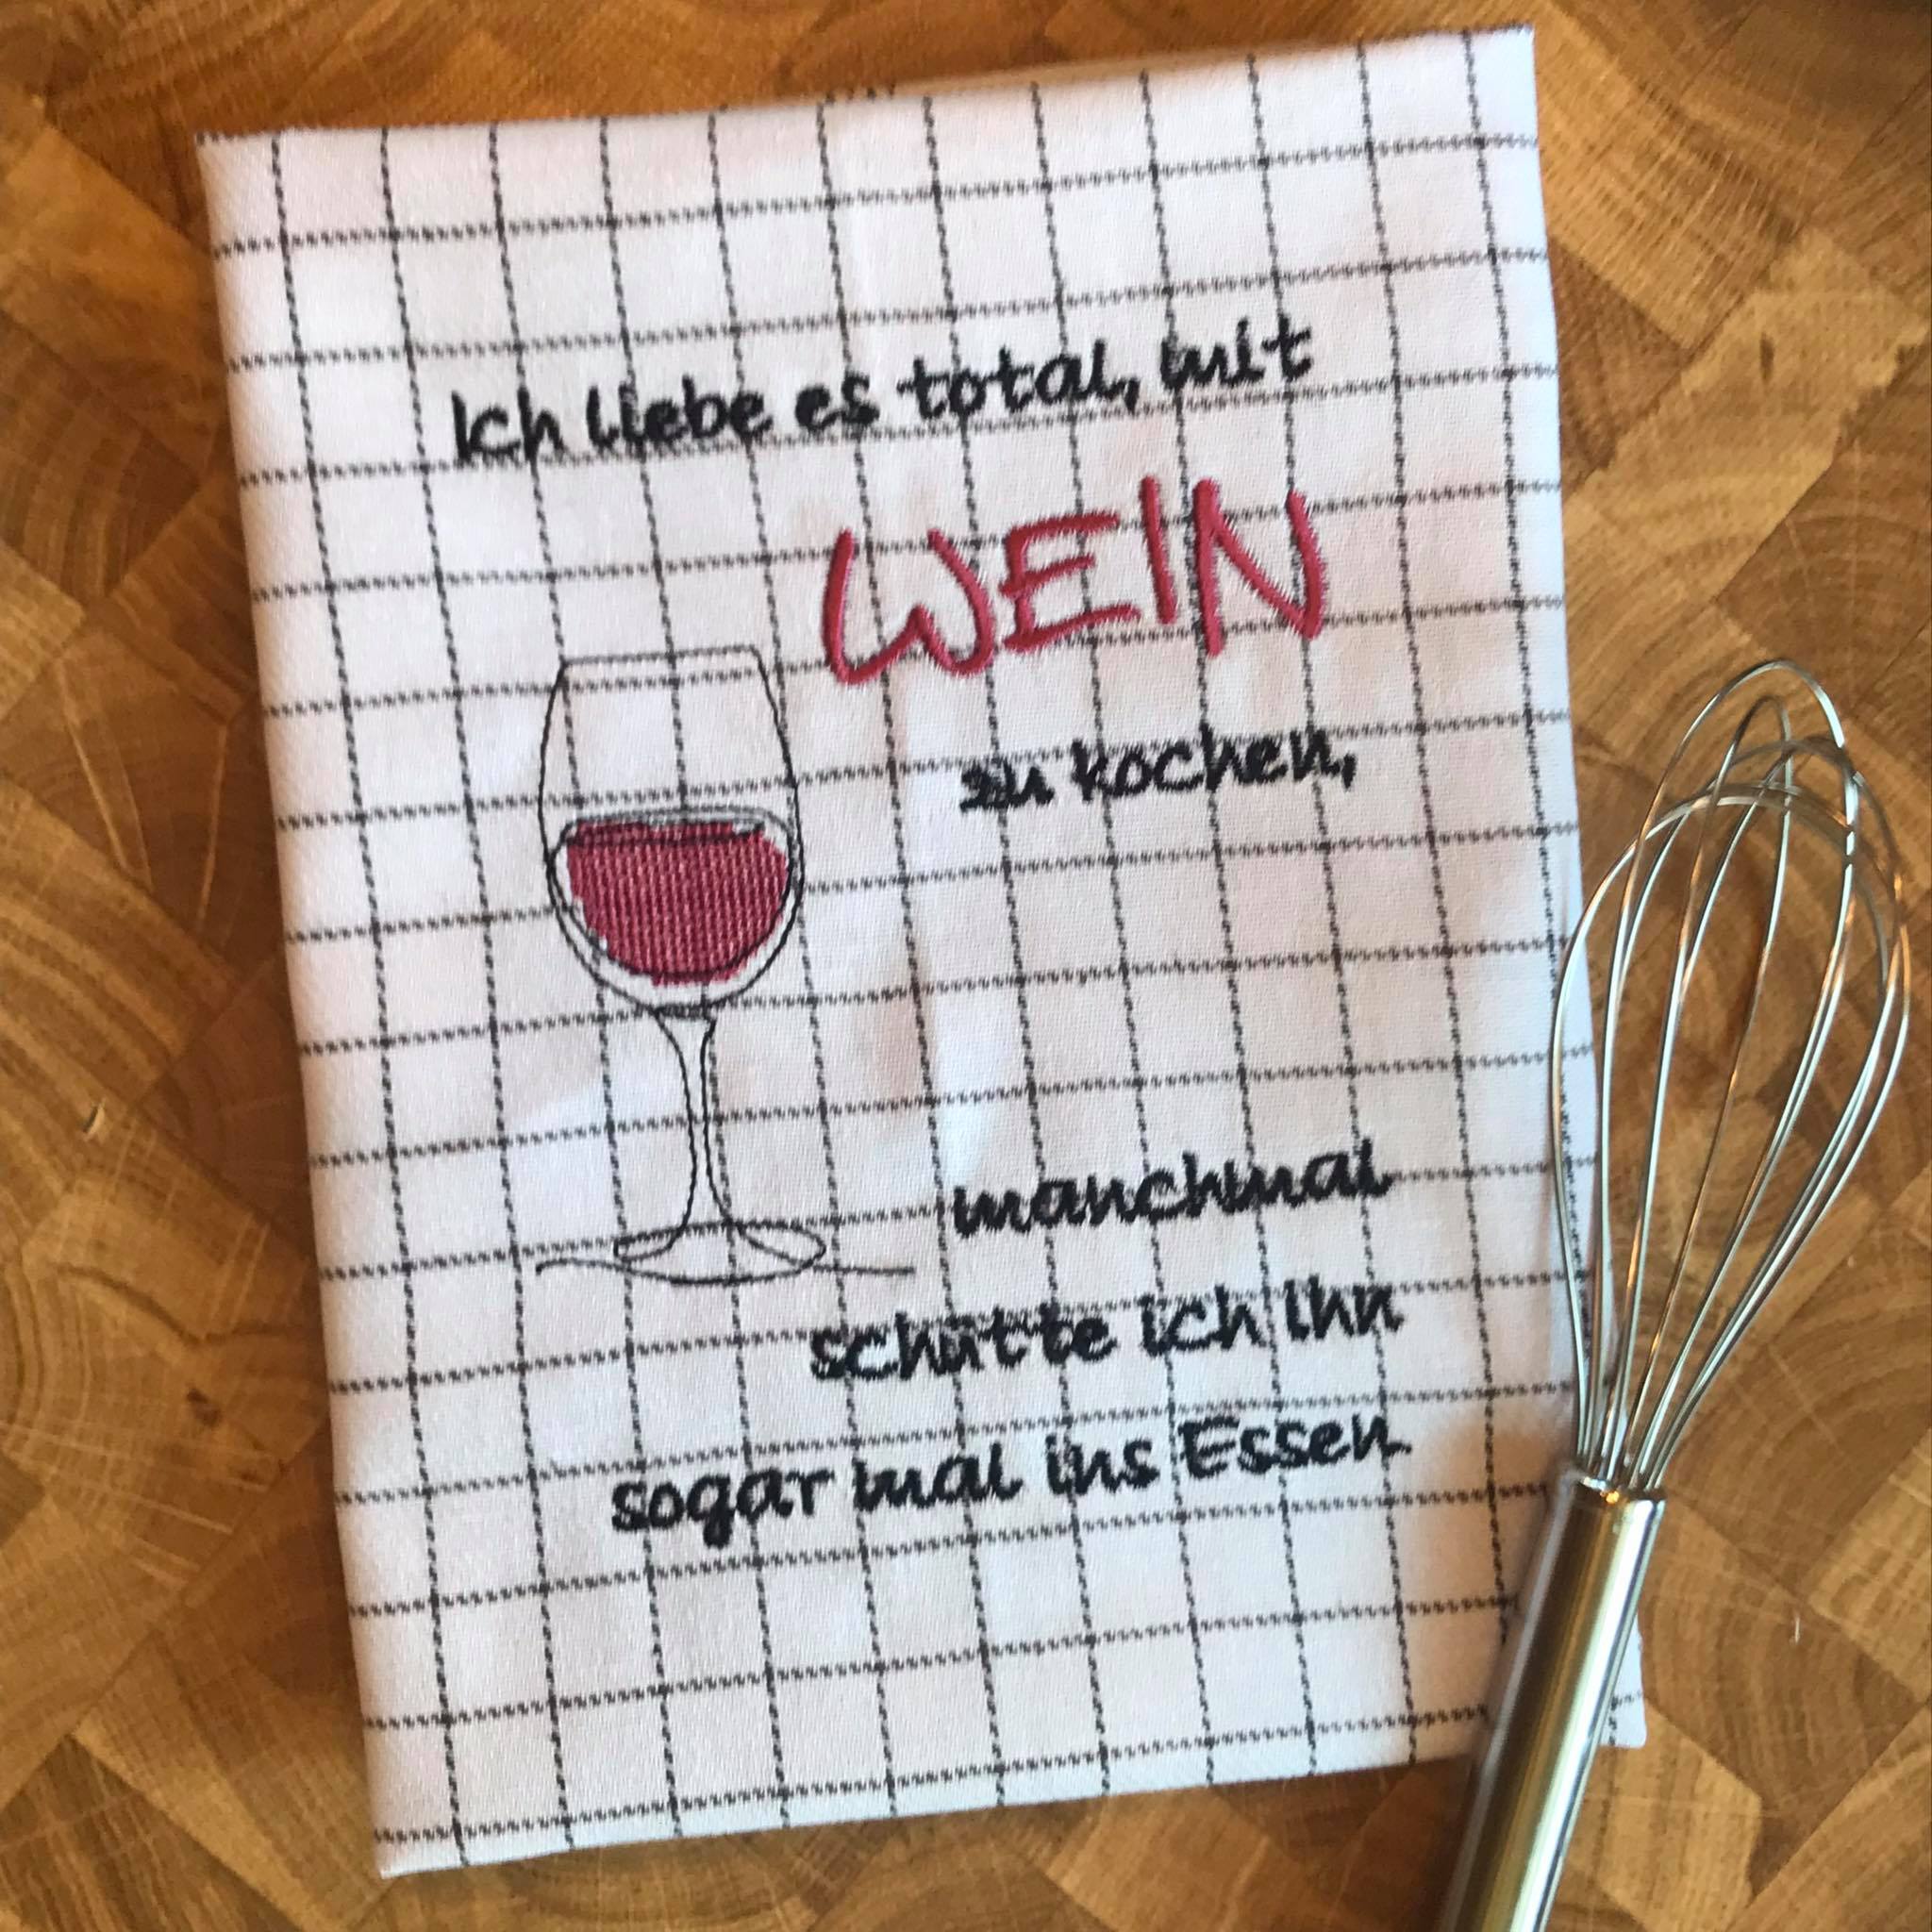 Ich liebe es total, mit
WEIN
zu kochen,
manchmal
schütte ich ihn
sogar mal ins Essen